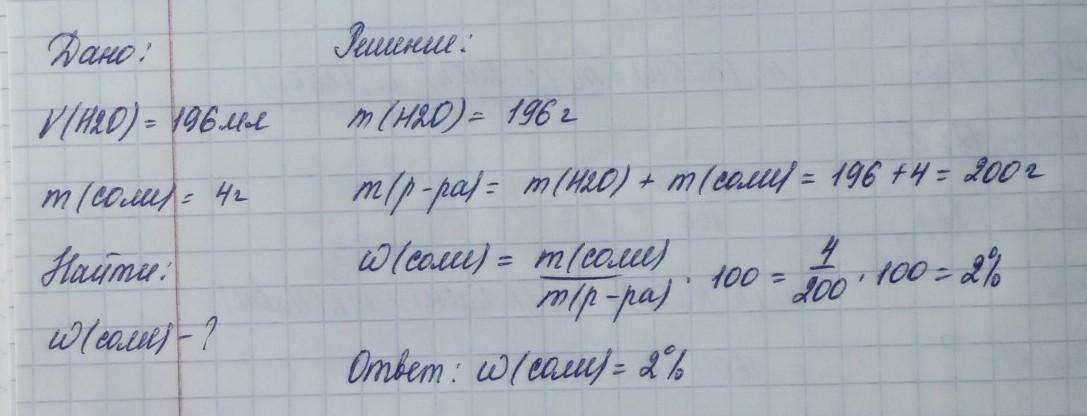 Дано:
V(H2O) = 196 мл
m(соли) = 4г
Найти:
ω(соли) - ?
Решение:
m(H2O) = 196 г
m(р-ра) = m(H2O) + m(соли) = 196 + 4 = 200 г
ω(соли) = m(соли)/m(р-ра) · 100 = 4/200 · 100 = 2%
Ответ: ω(соли) = 2%